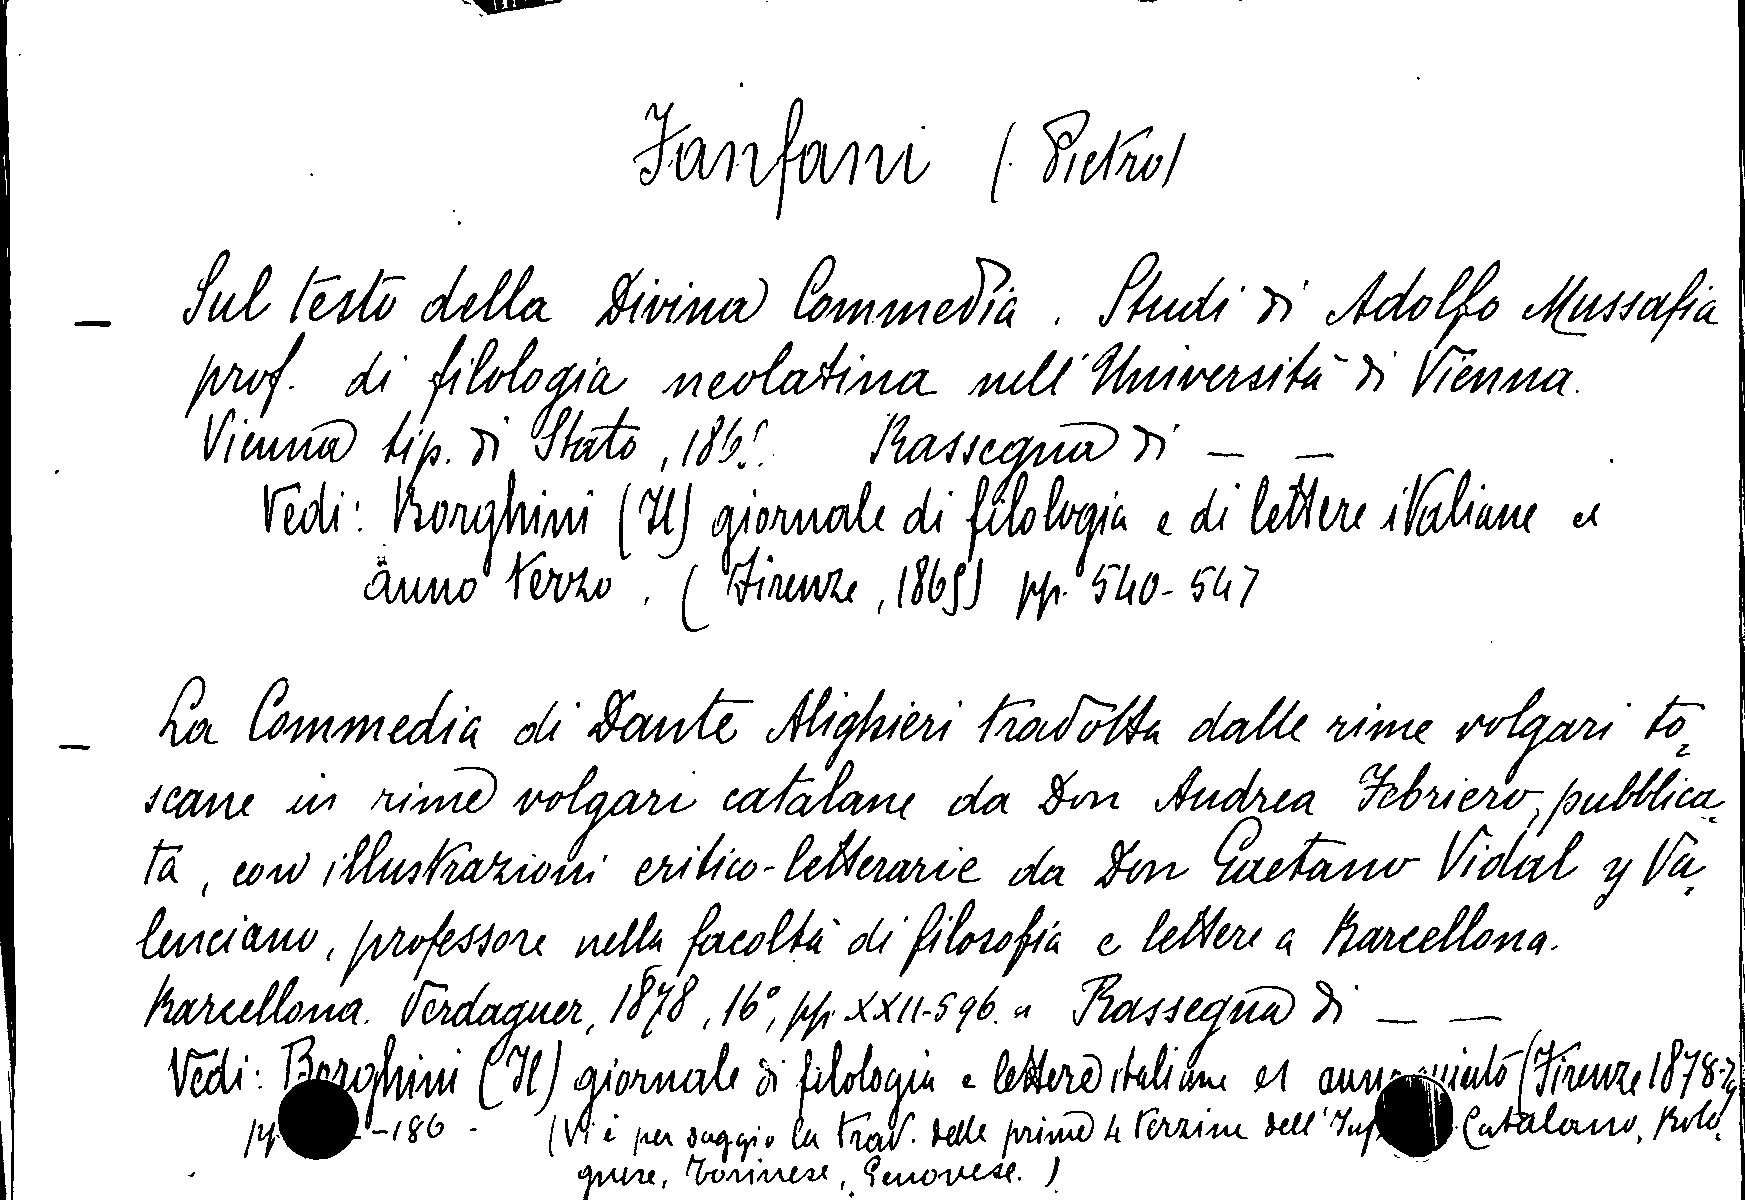 Fanfani (Pietro)
— Sul testo della Divina Commedia. Studi di Adolfo Mussafia
prof. di filologia neolatina nell'Università di Vienna.
Vienna tip. di Stato, Rassegna di — —
Vedi: Borghini (Il) giornale di filologia e di lettere italiane
anno terzo. (Firenze, 1865) pp. 540-547
— La Commedia di Dante Alighieri tradotta dalle rime volgari to=
scane in rime volgari catalane da Don Andrea Febriero, pubblica=
ta, con illustrazioni critico-letterarie da Don Gaetano Vidal y Va=
lenciano, professore nella facoltà di filosofia e lettere a Barcellona.
Barcellona. Verdaguer, 1878, 16°, pp. XXII-596. Rassegna di — —
Vedi: Borghini (Il) giornale di filologia e lettere italiane anno quinto (Firenze 1878-79
pp. -186 - (Vi è per saggio la trad. delle prime 4 terzine dell' Catalano, Bolo=
gnese, Torinese, Genovese.)